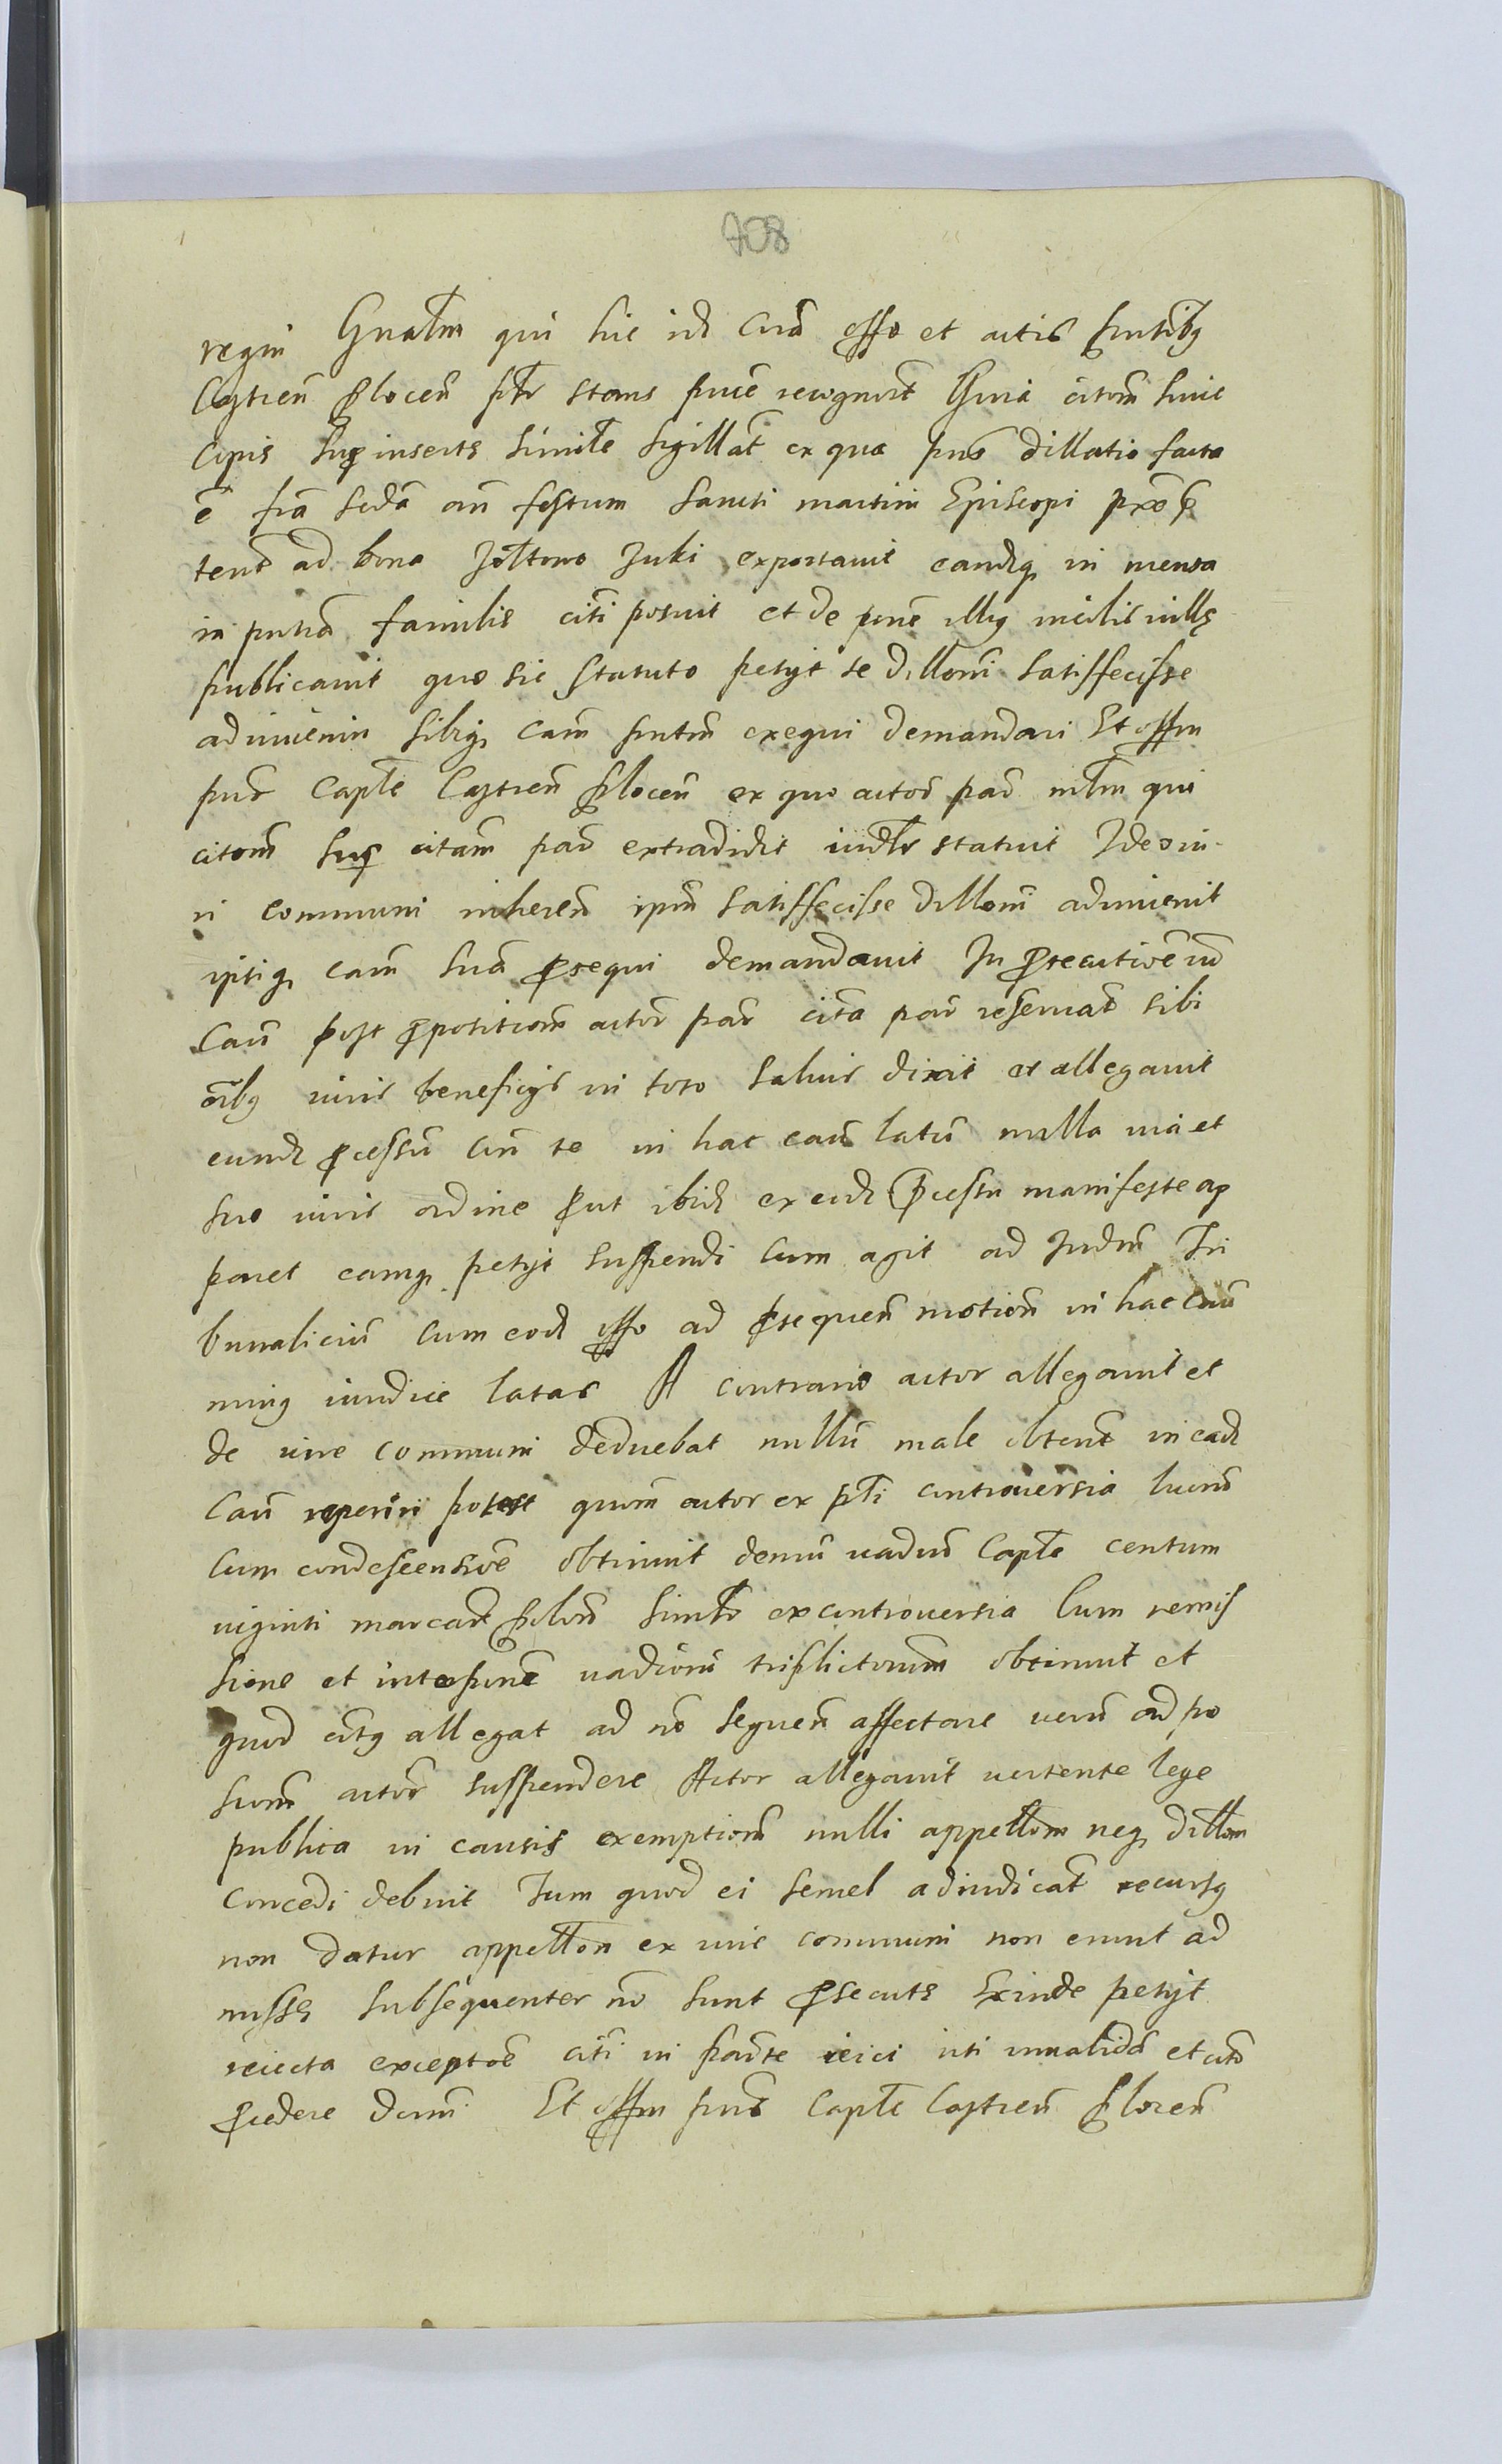 708
regin Gnalm qui hic id Cora offo et actis pntibg
Castren Plocen pr stans pnce recognovit Quia citom huic
Copis sup inserts simile sigillat ex qua pns dillatio facta
e fia seda an festum Sancti martini Episcopi prox p
terit ad bona Zoltowo Zuki exportavit eandq in mensa
in pntia familie citi posuit et de pone illig incolis villę
publicavit quo sic statuto petijt se dillomi satisfecisse
adinveniri sibiq cam pntem exequi demandari Et offm
pns Caple Castren Plocen ex quo actor par mlm qui
citom sup citam par extradidit iudlr statuit Ideo iu-
ri communi inheren ipm satisfecisse dillomi adinvenit
ipsiq cam sua prosequi demandavit In Prosecutione iur
Cau post propositiom actor par cita par reservat sibi
oibg iuris beneficijs in toto salvis dixit et allegavit
eund processu cu se in hac cau latu nulla via et
suo iuris ordine prout ibid ex eod Processu manifeste ap
paret eamq petijt suspendi Cum agit ad Judm Tri
bunalicium cum eod offo ad prosequen motiom in hac cau
ming iundice latas A contrario actor allegavit et
de iure communi deducebat nullu male obtent in ead
Cau reperiri potest quom actor ex pti controversia lucru
Cum condescensioe obtinuit demu vadiu Caple centum
viginti marcar polon simlr ex controversia Cum remis
sione et interpone vadiorum triplictorum obtinuit et
quod citg allegat ad no sequen affectare veru ad po
siom actor suspendere Actor allegavit vertente lege
publica in causis exemptiom nulli appellom neq dillom
concedi debuit Tum quod ei semel adiudicat recursg
non datur appellom ex iure communi non erunt ad
missę subsequenter no sunt prosecutę Exinde petijt
reiecta exceptoe citi in parte reici uti invalida et cito
procedere decerni Et offm pns Caple Castren Plocen